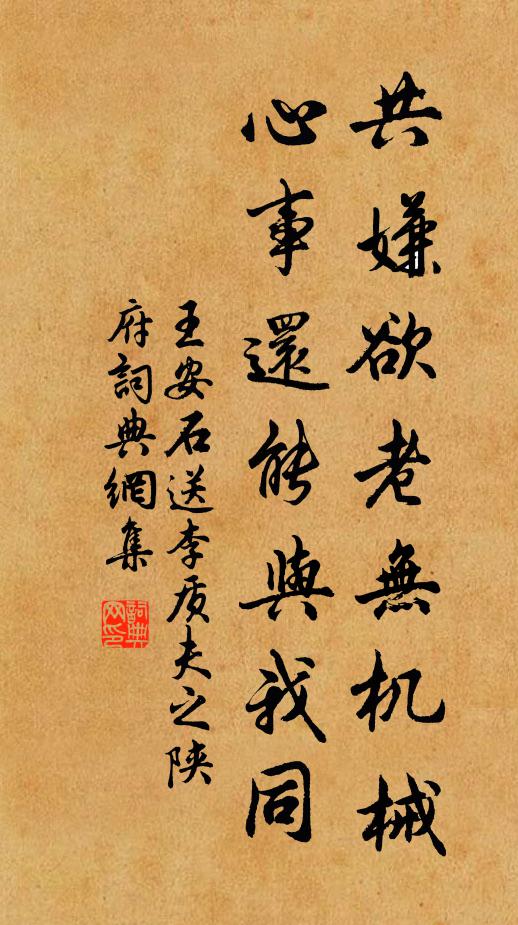 共嫌欲老無机械
心事還能與我同
王安石送李质夫之陕
府詞典網集
詞典网印